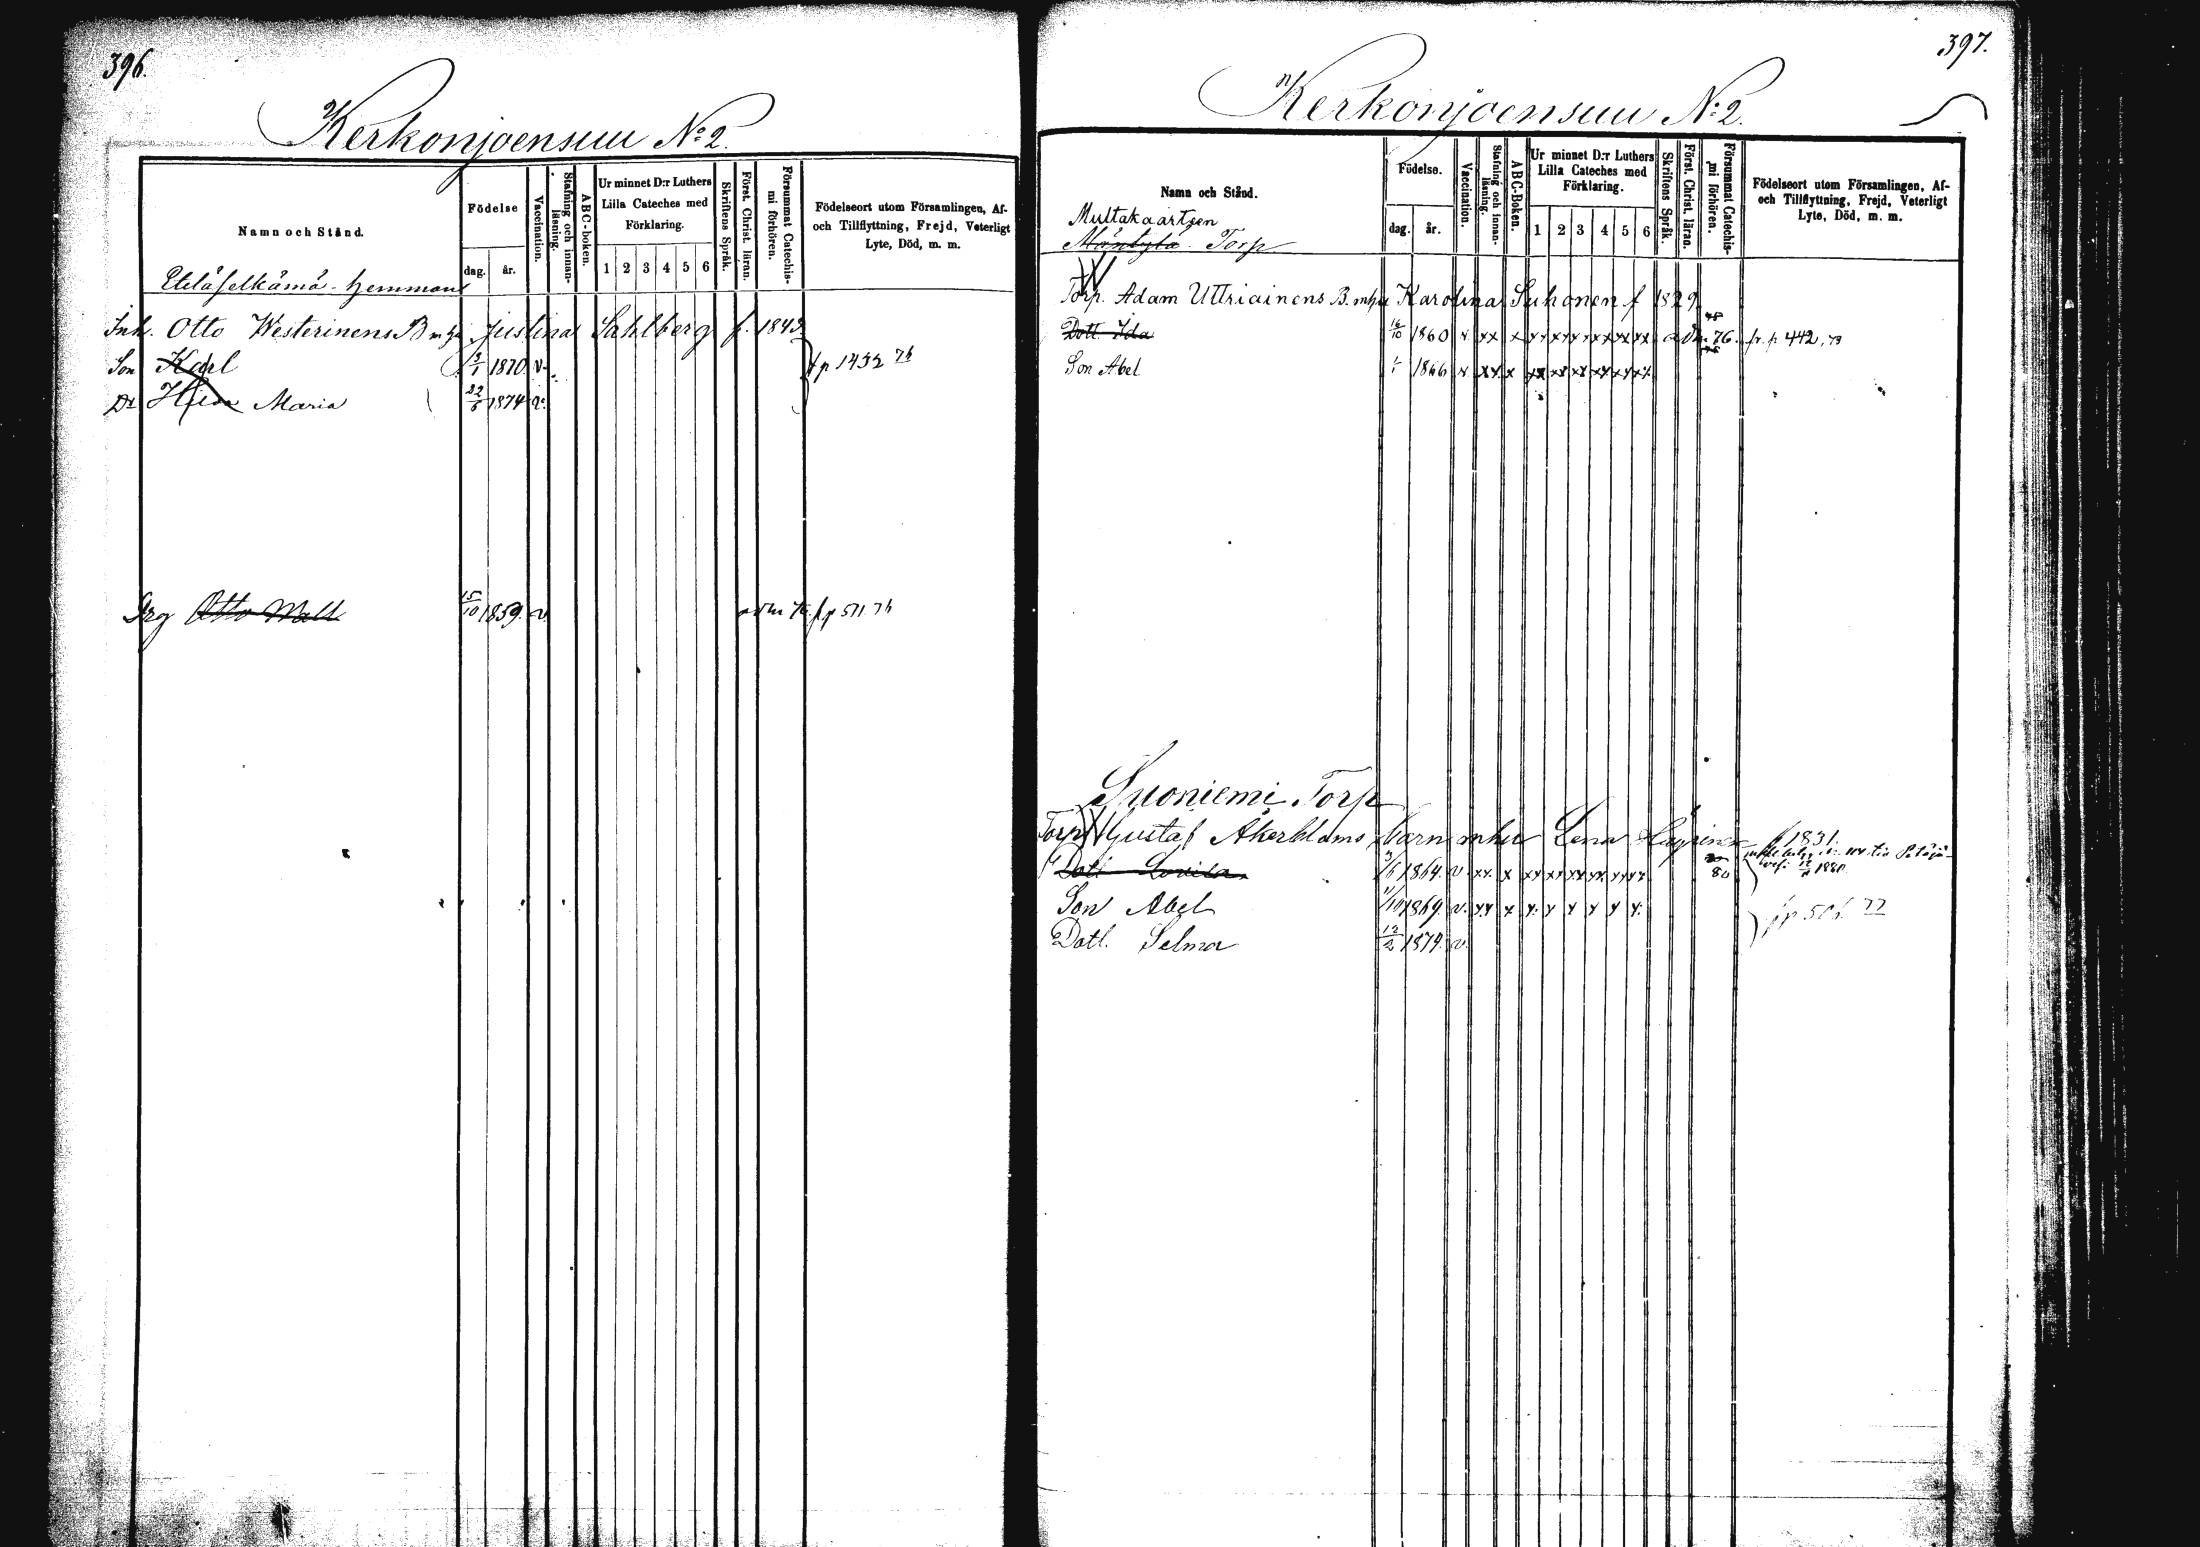 396.
Kerkonjoensuu No 2.
Namn och Stånd.
Födelse
dag. år.
Vaccination.
Stafning och innan-
läsning.
ABC-boken.
Ur minnet D:r Luthers
Lilla Cateches med
Förklaring.
1 2 3 4 5 6
Skriftens Språk.
Först. Christ. läran.
Försummat Catechis-
mi förhören.
Födelseort utom Församlingen, Af-
och Tillflyttning, Frejd, Veterligt
Lyte, Död, m. m.
hemman
Inh. Otto Westerinens B m h Justina Sahlberg f. 1843
Son Karl 1870 v. f p 1432 76
Dr Maria 22/6 1874 v.
Drg Otto Wall 15/10 1859. v. adm 76. f p 511 76
397.
Kerkonjoensuu No 2.
Namn och Stånd.
Födelse.
dag. år.
Vaccination.
Stafning och innan-
läsning.
ABC-Boken.
Ur minnet D:r Luthers
Lilla Cateches med
Förklaring.
1 2 3 4 5 6
Skriftens Språk.
Först. Christ. läran.
Försummat Catechis-
mi förhören.
Födelseort utom Församlingen, Af-
och Tillflyttning, Frejd, Veterligt
Lyte, Död, m. m.
Multakaartzen
Mäntylä Torp
Torp. Adam Uttriainens B. mhu Karolina Suhonen f 1829
Dott. Ida 16/10 1860 v xx x xx xx xx xx xx xx adm. 76. fr. p 442, 73
Son Abel 1/1 1866 v xx x xx xx xx xx xx xx
Suoniemi Torp
Torp Gustaf Åkerbloms barn mhu Lena f 1831.
Dott Lovisa 1864. v. xx x xx xx xx xx xx xx 80
Son Abel 1/10 1869. v. xx x x x x x x x
Dott. Selma 12/2 1879. v.